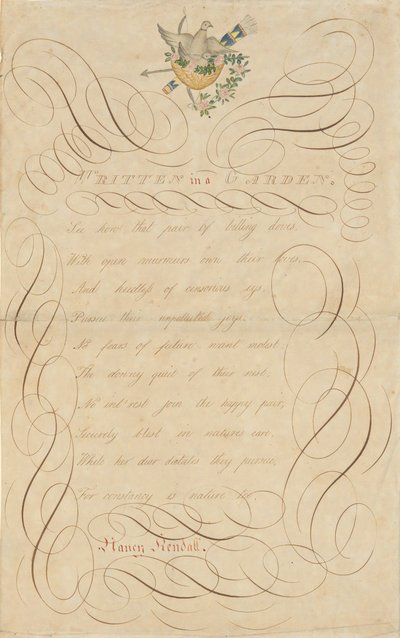 WRITTEN in a GARDEN.
See how that pair of billing doves,
With open murmurs own their loves,
And heedless of censorious eyes,
Pursue their unpolluted joys.
No fears of future want molest
The downy quiet of their nest;
No int'rest join the happy pair,
Securely blest in natures care,
While her dear dictates they pursue,
For constancy is nature too.
Nancy Kendall.